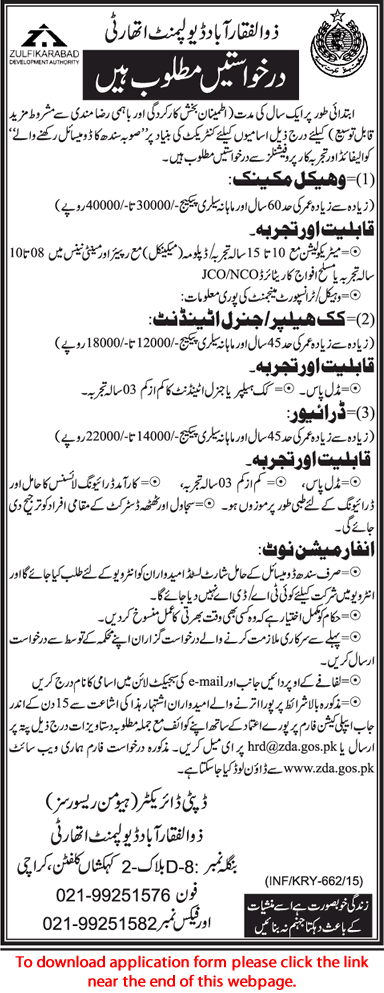 ذوالفقار آباد ڈیولپمنٹ اتھارٹی
ZULFIKARABAD
DEVELOPMENT AUTHORITY
درخواستیں مطلوب ہیں
ابتدائی طور پر ایک سال کی مدت (اطمینان بخش کارکردگی اور باہمی رضامندی سے مشروط مزید
قابل توسیع) کیلئے درج ذیل اسامیوں کیلئے کنٹریکٹ کی بنیاد پر ”صوبہ سندھ کا ڈومیسائل رکھنے والے“
کوالیفائڈ اور تجربہ کار پروفیشنلز سے درخواستیں مطلوب ہیں۔
(1)=وھیکل مکینک:
(زیادہ سے زیادہ عمر کی حد 60 سال اور ماہانہ سیلری پیکیج -/30000 تا -/40000 روپے)
قابلیت اور تجربہ:
⦿=میٹریکولیشن مع 10 تا 15 سالہ تجربہ / ڈپلومہ (میکینکل) مع رپیئر اور مینٹی نینس میں 08 تا 10
سالہ تجربہ یا مسلح افواج کا ریٹائرڈ JCO/NCO
⦿=وہیکل / ٹرانسپورٹ مینجمنٹ کی پوری معلومات:
(2)=کک ھیلپر/جنرل اٹینڈنٹ:
(زیادہ سے زیادہ عمر کی حد 45 سال اور ماہانہ سیلری پیکیج -/12000 تا -/18000 روپے)
قابلیت اور تجربہ:
⦿=مڈل پاس۔ ⦿=کک ہیلپر یا جنرل اٹینڈنٹ کا کم از کم 03 سالہ تجربہ۔
(3)=ڈرائیور:
(زیادہ سے زیادہ عمر کی حد 45 سال اور ماہانہ سیلری پیکیج -/14000 تا -/22000 روپے)
قابلیت اور تجربہ:
⦿=مڈل پاس، ⦿=کم از کم 03 سالہ تجربہ، ⦿=کارآمد ڈرائیونگ لائسنس کا حامل اور
ڈرائیونگ کے لئے طبی طور پر موزوں ہو۔ ⦿=سجاول اور ٹھٹھہ ڈسٹرکٹ کے مقامی افراد کو ترجیح دی
جائے گی۔
انفارمیشن نوٹ:
⦿=صرف سندھ ڈومیسائل کے حامل شارٹ لسٹڈ امیدواران کو انٹرویو کے لئے طلب کیا جائے گا اور
انٹرویو میں شرکت کیلئے کوئی ٹی اے / ڈی اے نہیں دیا جائے گا۔
⦿=حکام کو مکمل اختیار ہے کہ وہ کسی بھی وقت بھرتی کا عمل منسوخ کردیں۔
⦿=پہلے سے سرکاری ملازمت کرنے والے درخواست گزاران اپنے محکمہ کے توسط سے درخواست
ارسال کریں۔
⦿=لفافے کے اوپر دائیں جانب اور e-mail کی سبجیکٹ لائن میں اسامی کا نام درج کریں
⦿=مذکورہ بالا شرائط پر پورا اترنے والے امیدواران اشتہار ہذا کی اشاعت سے 15 دن کے اندر
جاب اپلیکیشن فارم پر پورے اعتماد کے ساتھ اپنے کوائف مع جملہ مطلوبہ دستاویزات درج ذیل پتہ پر
ارسال یا hrd@zda.gos.pk پر ای میل کریں۔ مذکورہ درخواست فارم ہماری ویب سائٹ
www.zda.gos.pk سے ڈاؤن لوڈ کیا جاسکتا ہے۔
ڈپٹی ڈائریکٹر (ہیومن ریسورسز)
ذوالفقار آباد ڈیولپمنٹ اتھارٹی
بنگلہ نمبر: D-8 بلاک-2 کہکشاں کلفٹن، کراچی
فون 021-99251576
اور فیکس نمبر 021-99251582
(INF/KRY-662/15)
زندگی خوبصورت ہے اسے منشیات
کے باعث دہکتا جہنم نہ بنائیں
To download application form please click the link
near the end of this webpage.